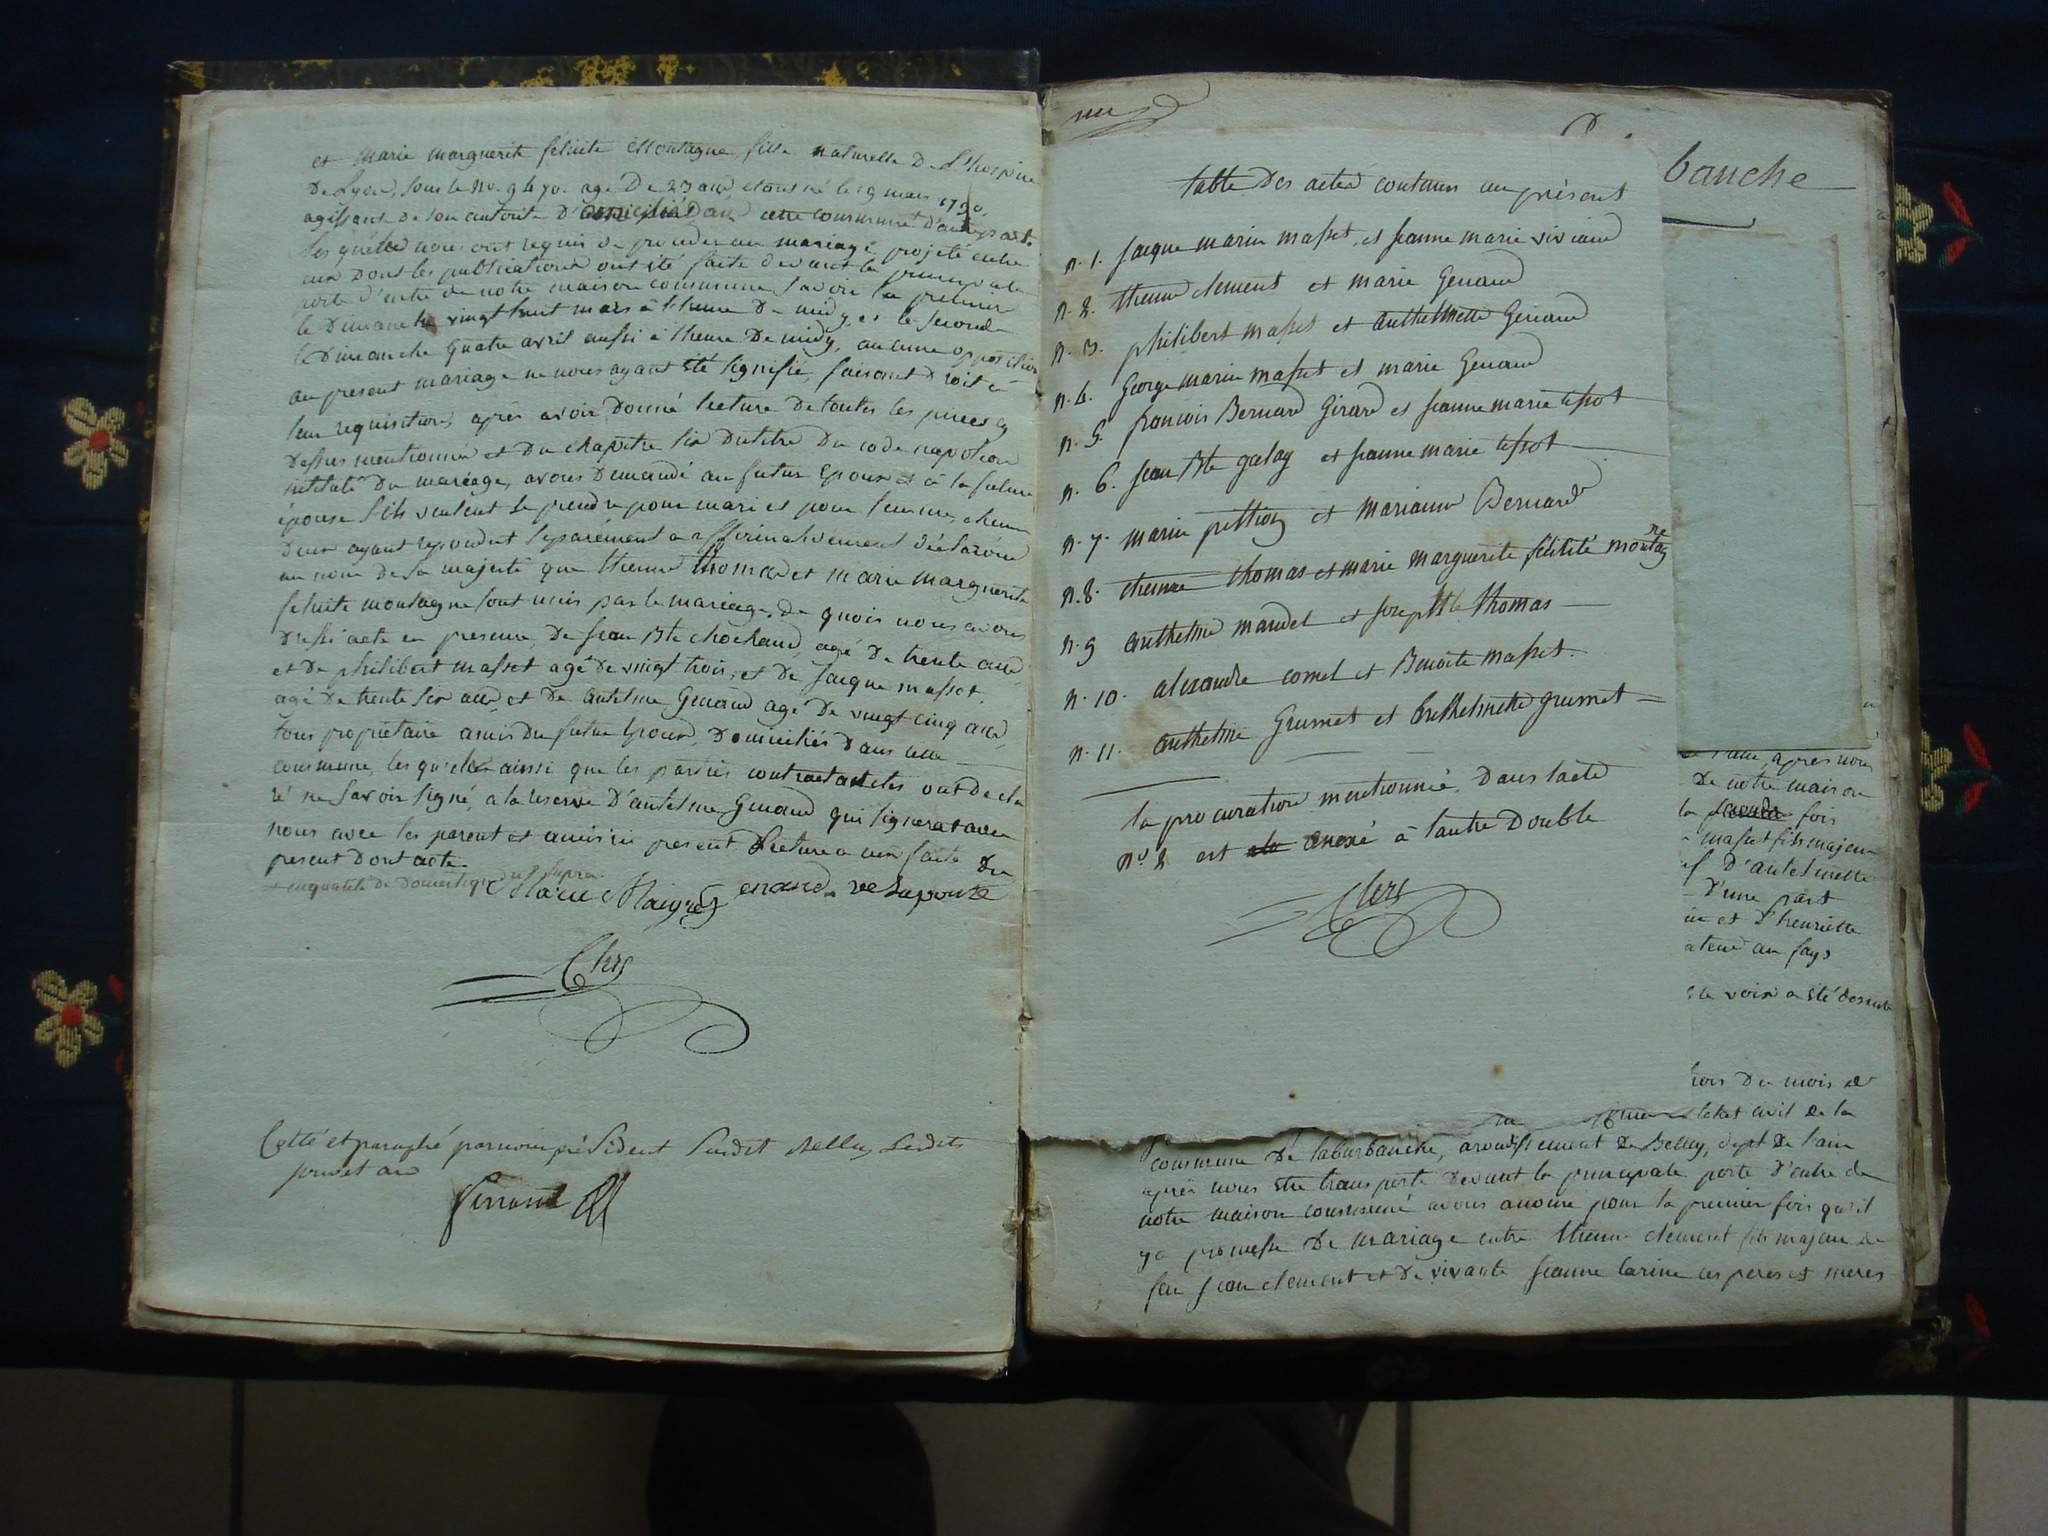 et marie marguerite felicite Montagne, fille naturelle De L'hospice
De Lyon, sous le No. 9470. agé De 23 ans etant né le 9 mars 1790,
agissant de son autorité D'
les quelle nous ont requis de proceder au mariage projeté entre
eux Dont les publications ont été faite devant la principale
porte d'entré de notre maison commune, Savoir la premier
le Dimanche vingt huit mars à l'heure De midy, et la seconde
le Dimanche Quatre avril aussi à l'heure De midy, aucune opposition
au present mariage ne nous ayant été signifié, faisant droit à
leur requisition, après avoir Donné lecture De toutes les pieces cy
Dessus mentionnée et Du chapitre six Du titre Du code napoleon
intitulé Du mariage, avons Demandé au futur Epoux et à la future
épouse s'ils veulent se prendre pour mari et pour femme, chacun
Deux ayant repondu separément et affirmativement Déclarons
au nom de sa majesté que thienne thomas et marie marguerite
felicite montagne sont unis par le mariage, De quoi nous avons
Dressé acte en presence, De Jean Bte chochand, agé De trente ans
et De philibert masset agé De vingt trois, et De Jacque masset
agé De trente six ans et De antelme Genand agé De vingt cinq ans
tous propriétaire amis Du futur Epoux, Domiciliés Dans cette
commune, les quelle ainsi que les parties contractantes ont Decla
ré ne savoir signé, a la reserve D'antelme Genand qui signera avec
nous avec les parent et amis ici present Lecture a eux faite Du
present Dont acte
Cotté et paraphé par nous président
Table Des actes contenu au présent
n. 1. Jacque marin masset, et Jeanne marie viviand
n. 2. thienne clement et marie Genand
n. 3. philibert masset et anthelmette Genand
n. 4. George marin masset et marie Genand
n. 5. francois Bernard Girard et Jeanne marie tissot
n. 6. Jean Bte galay et Jeanne marie tissot
n. 7. marin pithioz et marianne Bernard
n. 8. thienne thomas et marie marguerite félicité montagne
n. 9 anthelme mandet et Josephte thomas
n. 10. alexandre comet et Benoite masset.
n. 11. anthelme Grumet et Anthelmette grumet
la procuration mentionnée, Dans l'acte
n° 8 est anexé à l'autre Double
banche
après nous
De notre maison
la seconde fois
masset fils majeur
D'antelmette
D'une part
et D'henriette
au fays
la voix a été
Du mois de
l'etat civil de la
commune De laburbanche, arondissement De Belley, dept De l'ain
après nous etre transporté Devant la principale porte D'entré de
notre maison commune avons anoncé pour la premier fois qu'il
y a promesse De mariage entre thienne clement fils majeur de
feu Jean clement et De vivante Jeanne Carine ces peres et meres